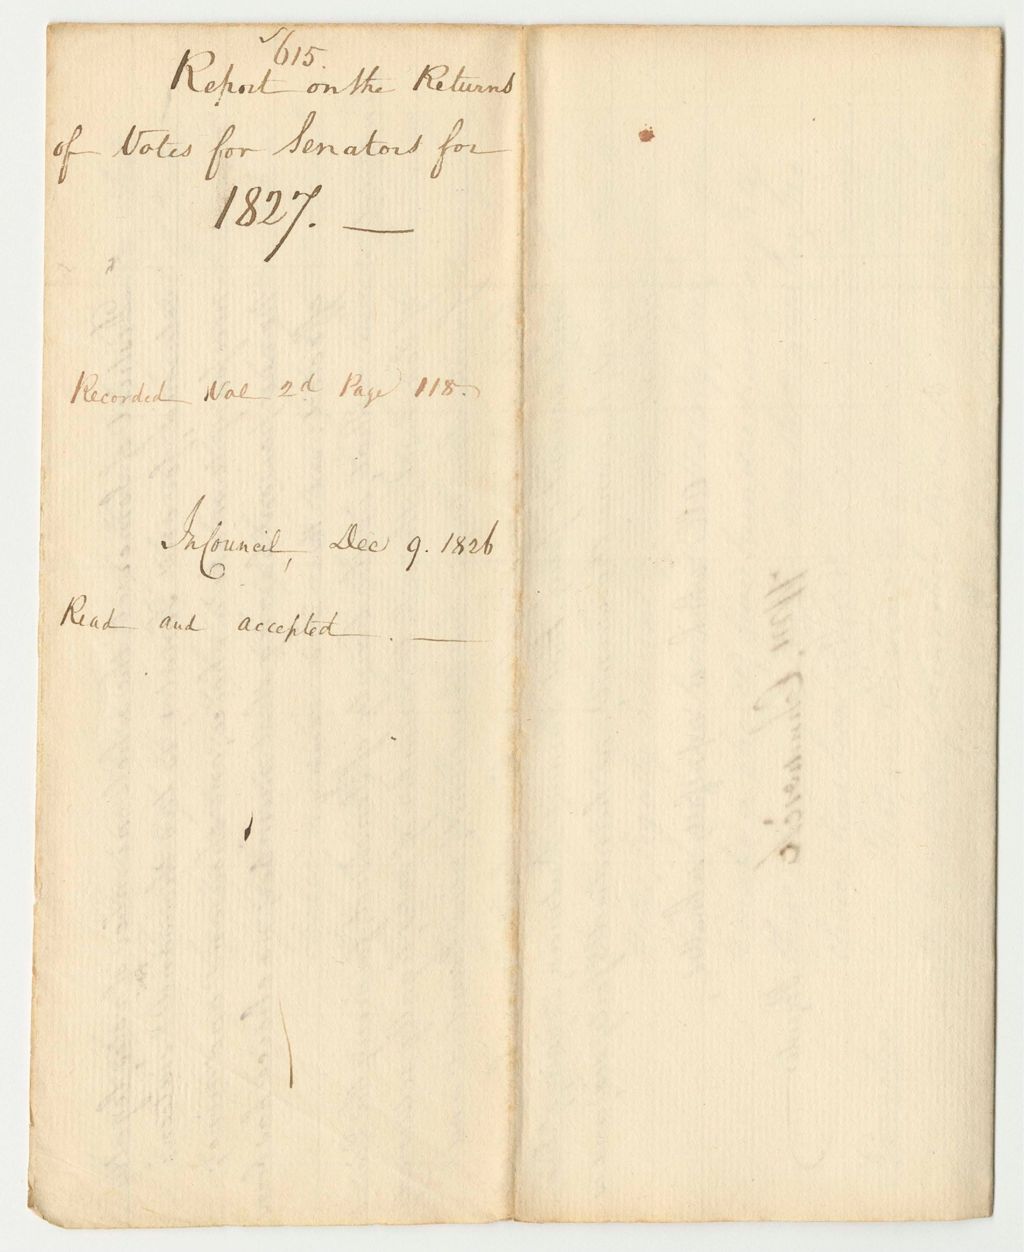 615.
Report on the Returns
of Votes for Senators for
1827. —
Recorded Vol 2d Page 118.
In Council, Dec 9. 1826
Read and accepted. —